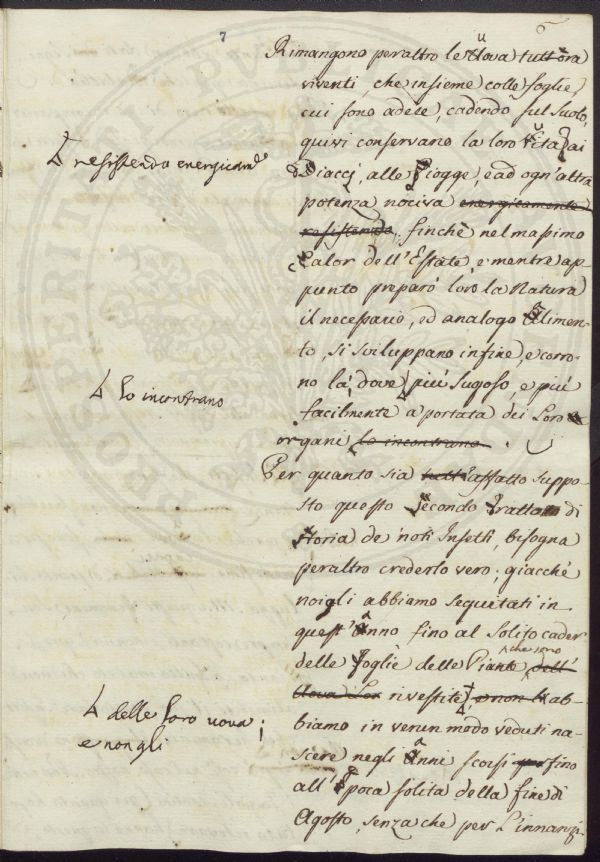 7
6
Rimangono peraltro le Uova tuttora
viventi, che insieme colle foglie,
cui sono adese, cadendo sul Suolo,
quivi conservano la loro vita ai
diacci, alle piogge, e ad ogn'altra
potenza nociva energicamente
resistendo, finchè nel massimo
calor dell'Estate, e mentre ap-
punto preparò loro la Natura
il necessario, ed analogo alimen-
to, si sviluppano infine, e corro-
no là, dove più sugoso, e più
facilmente a portata dei loro
organi lo incontrano.
Per quanto sia tutt'affatto suppo-
sto questo secondo tratto di
storia de' noti Insetti, bisogna
peraltro crederlo vero; giacchè
noi gli abbiamo seguitati in
quest'anno fino al solito cader
delle foglie delle Piante, che sono dell'
Uova rivestite, e non li ab-
biamo in verun modo veduti na-
scere negli anni scorsi fino
all'epoca solita della fine di
Agosto, senza che per l'innanzi
resistendo energicam.te
lo incontrano
delle loro uova;
e non gli